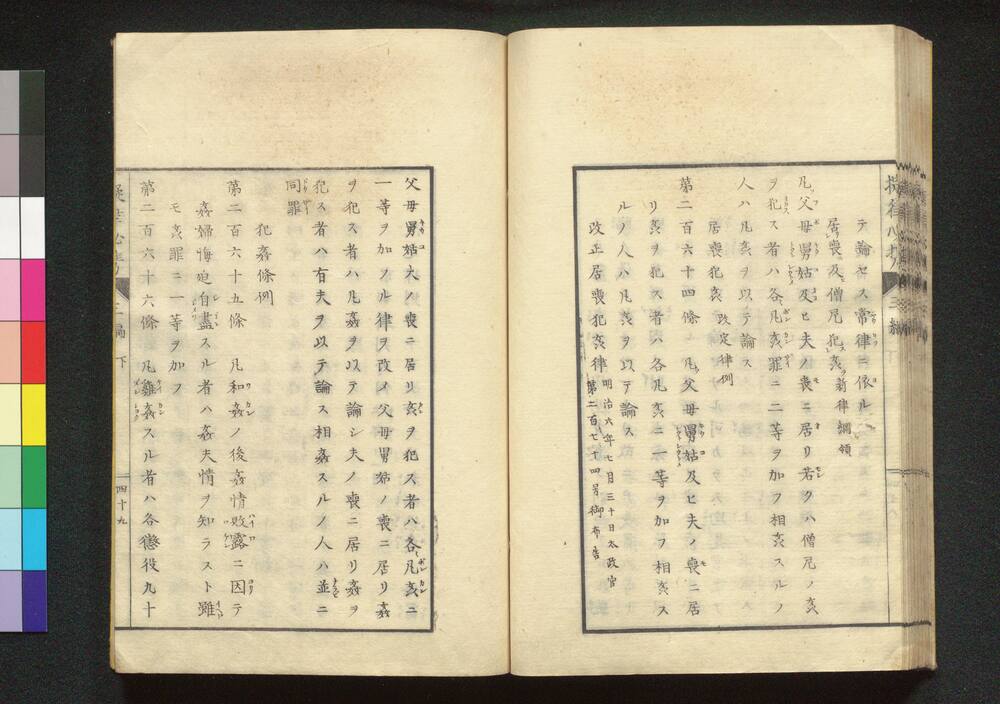 テ論セス常律ニ依ル
居喪及僧尼犯姦 新律綱領
凡父母舅姑及ヒ夫ノ喪ニ居リ若クハ僧尼ノ姦
ヲ犯ス者ハ各凡姦罪ニ二等ヲ加フ相姦スルノ
人ハ凡姦ヲ以テ論ス
居喪犯姦 改定律例
第二百六十四條 凡父母舅姑及ヒ夫ノ喪ニ居
リ姦ヲ犯ス者ハ各凡姦ニ二等ヲ加フ相姦ス
ルノ人ハ凡姦ヲ以テ論ス
改正居喪犯姦律 明治六年七月三十日太政官
第二百七十四号御布告
三編
下
父母舅姑夫ノ喪ニ居リ姦ヲ犯ス者ハ各凡姦ニ
一等ヲ加ノル律ヲ改メ父母舅姑ノ喪ニ居リ姦
ヲ犯ス者ハ凡姦ヲ以テ論シ夫ノ喪ニ居リ姦ヲ
犯ス者ハ有夫ヲ以テ論ス相姦スルノ人ハ並ニ
同罪
犯姦條例
第二百六十五條 凡和姦ノ後姦情敗露ニ因テ
姦婦悔迫自盡スル者ハ姦夫情ヲ知ラスト雖
モ姦罪ニ一等ヲ加フ
第二百六十六條 凡雞姦スル者ハ各懲役九十
三編
下
四十九